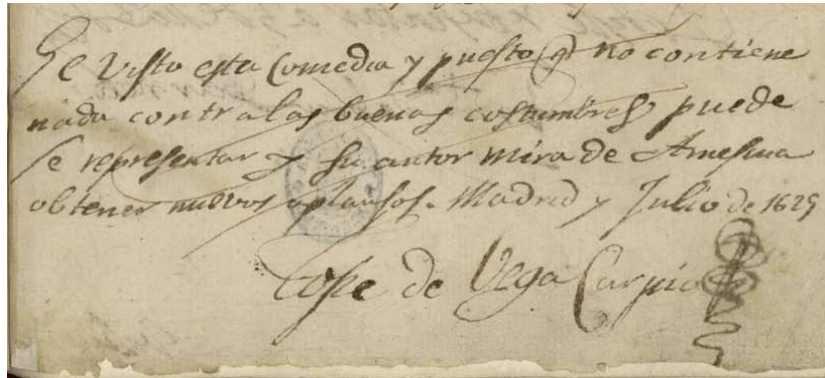 He visto esta Comedia y puesto q no contiene
nada contra las buenas costumbres, puede
se representar y su autor mira de Amescua
obtener nuevos aplausos. Madrid y Julio de 1625
Lope de Vega Carpio